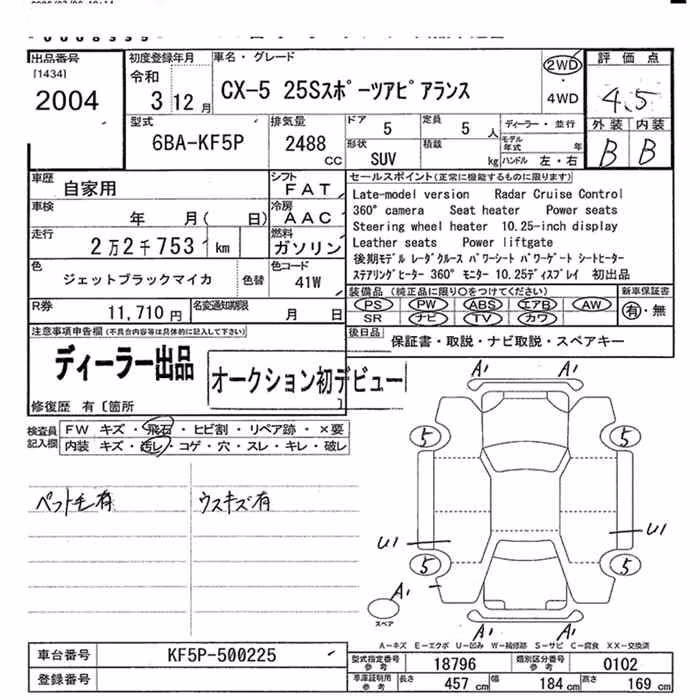 出品番号 初度登録年月 車名・グレード 評価点
[1434] 令和 2WD
2004 3 12月 CX-5 25Sスポーツアピアランス ・ 4.5
4WD
型式 排気量 ドア 定員 ディーラー・並行 外装 内装
6BA-KF5P 2488 CC 5 5人 モデル年式 年 B B
形状 SUV 積載 kg ハンドル 左・右
車歴 自家用 シフト FAT セールスポイント(正常に機能するものに限ります)
車検 年 月( 日) 冷房 AAC Late-model version Radar Cruise Control
360°camera Seat heater Power seats
走行 2万2千753 km 燃料 ガソリン Steering wheel heater 10.25-inch display
Leather seats Power liftgate
色 ジェットブラックマイカ 色替 色コード 41W 後期モデル レーダクルース パワーシート パワーゲート シートヒーター
ステアリングヒーター 360°モニター 10.25ディスプレイ 初出品
R券 11,710円 名変通知期限 月 日 装備品(純正品に限り○をつけてください) 新車保証書
PS PW ABS エアB AW 有・無
SR ナビ TV カワ
注意事項申告欄(不具合内容等は具体的に記入して下さい) 後日品 保証書・取説・ナビ取説・スペアキー
ディーラー出品
オークション初デビュー
修復歴 有〔箇所
検査員 FW キズ・飛石・ヒビ割・リペア跡・×要
記入欄 内装 キズ・汚レ・コゲ・穴・スレ・キレ・破レ
ペット毛有 ウスキズ有
A1 A1
5 5
U1 U1
5 5
A1
スペア
A-キズ E-エクボ U-凹み W-補修跡 S-サビ C-腐食 XX-交換済
車台番号 KF5P-500225 型式指定番号 参考 18796 類別区分番号 参考 0102
登録番号 車庫証明用 参考 長さ 457cm 幅 184cm 高さ 169cm